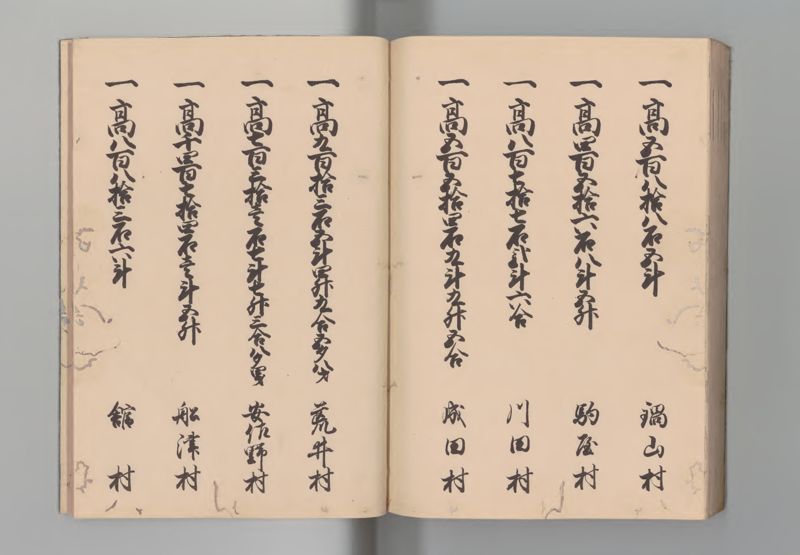 一高五百八拾八石五斗 鍋山村
一高四百五拾六石八斗五升 駒屋村
一高八百七拾七石弐斗六合 川田村
一高五百五拾四石九斗九升五合 成田村
一高九百拾三石五斗四升九合五夕八才 荒井村
一高七百三拾壱石七斗七升三合八夕 安佐野村
一高千四百七拾四石壱斗五升 舩津村
一高八百八拾三石六斗 舘村